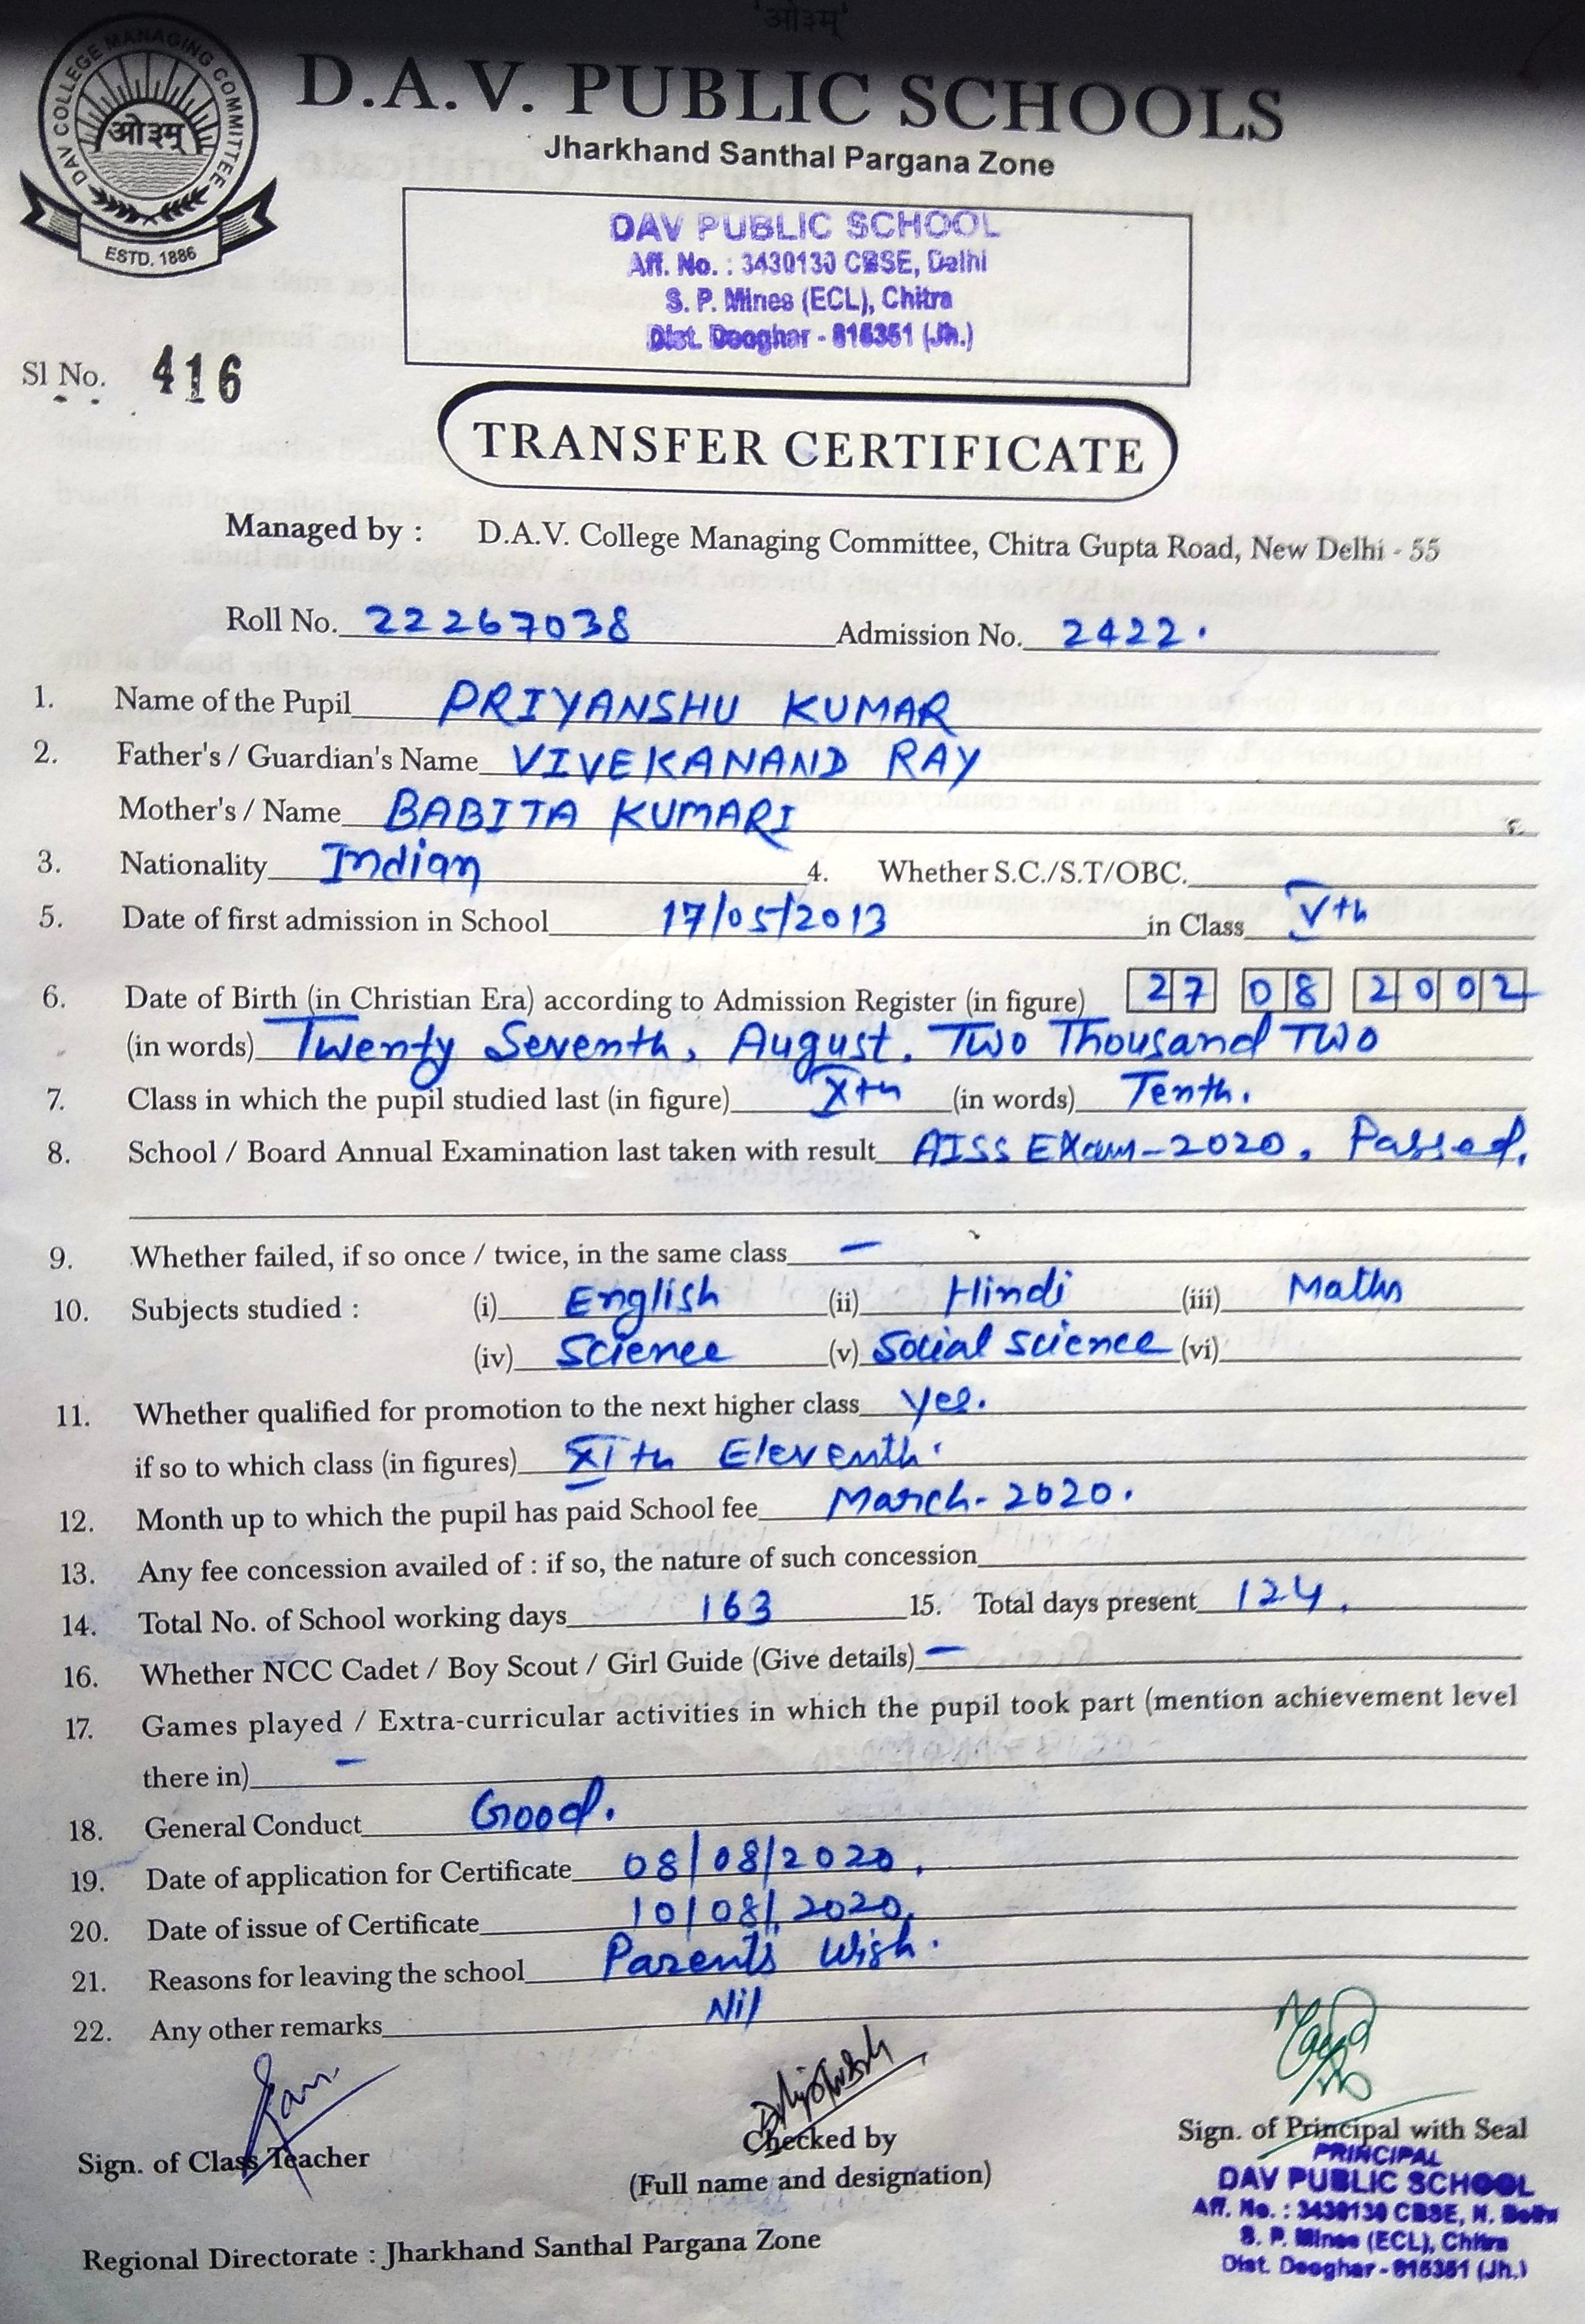 'ओ३म्'
DAV COLLEGE MANAGING COMMITTEE
ओ३म्
ESTD. 1886
D.A.V. PUBLIC SCHOOLS
Jharkhand Santhal Pargana Zone
DAV PUBLIC SCHOOL
Aff. No. : 3430130 CBSE, Delhi
S. P. Mines (ECL), Chitra
Dist. Deoghar - 815351 (Jh.)
Sl No. 416
TRANSFER CERTIFICATE
Managed by : D.A.V. College Managing Committee, Chitra Gupta Road, New Delhi - 55
Roll No. 22267038 Admission No. 2422.
1. Name of the Pupil PRIYANSHU KUMAR
2. Father's / Guardian's Name VIVEKANAND RAY
Mother's / Name BABITA KUMARI
3. Nationality Indian 4. Whether S.C./S.T/OBC.
5. Date of first admission in School 17/05/2013 in Class Vth
6. Date of Birth (in Christian Era) according to Admission Register (in figure) 27 08 2002
(in words) Twenty Seventh, August. Two Thousand Two
7. Class in which the pupil studied last (in figure) Xth (in words) Tenth.
8. School / Board Annual Examination last taken with result AISS EXam-2020, Passed.
9. Whether failed, if so once / twice, in the same class –
10. Subjects studied : (i) English (ii) Hindi (iii) Maths
(iv) Science (v) Social science (vi)
11. Whether qualified for promotion to the next higher class yes.
if so to which class (in figures) XIth Eleventh.
12. Month up to which the pupil has paid School fee March-2020.
13. Any fee concession availed of : if so, the nature of such concession
14. Total No. of School working days 163 15. Total days present 124.
16. Whether NCC Cadet / Boy Scout / Girl Guide (Give details) –
17. Games played / Extra-curricular activities in which the pupil took part (mention achievement level
there in) –
18. General Conduct Good.
19. Date of application for Certificate 08/08/2020.
20. Date of issue of Certificate 10/08/2020.
21. Reasons for leaving the school Parents Wish.
22. Any other remarks Nil
Sign. of Class Teacher
Checked by
(Full name and designation)
Sign. of Principal with Seal
PRINCIPAL
DAV PUBLIC SCHOOL
Aff. No. : 3430130 CBSE, N. Delhi
S. P. Mines (ECL), Chitra
Dist. Deoghar - 815351 (Jh.)
Regional Directorate : Jharkhand Santhal Pargana Zone